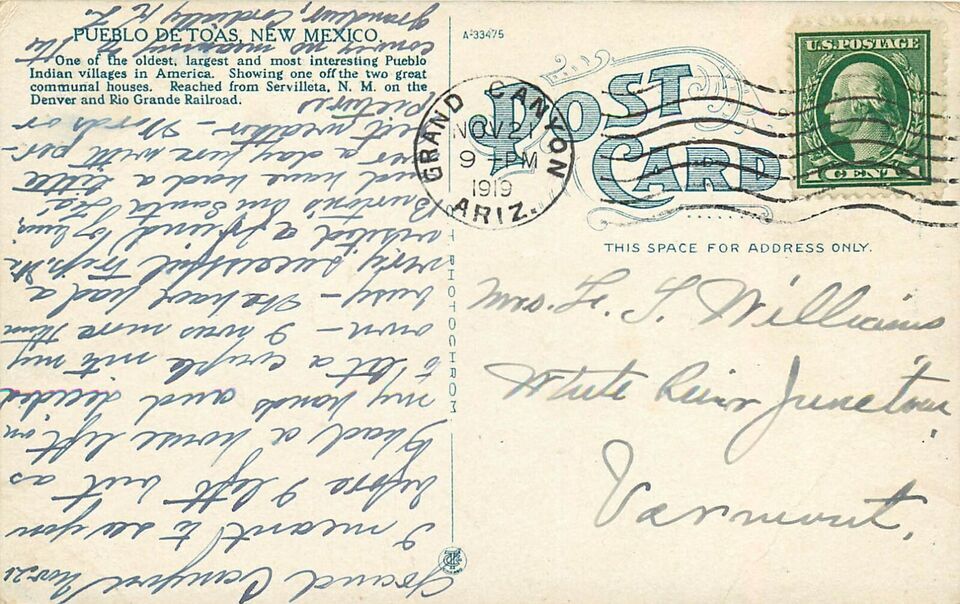 PUEBLO DE TOAS, NEW MEXICO.
One of the oldest, largest and most interesting Pueblo
Indian villages in America. Showing one off the two great
communal houses. Reached from Servilleta, N. M. on the
Denver and Rio Grande Railroad.
A-33475
POST
CARD
GRAND CANYON
NOV 21
9 PM
1919
ARIZ.
U.S. POSTAGE
CENT
THIS SPACE FOR ADDRESS ONLY.
Mrs. F. S. Williams
White River Junction
Vermont.
PHOTOCHROM
Grand Canyon Nov 21
I meant to see you
before I left but as
I had a house left on
my hands and decided
to let a couple into my
own – I was more than
busy – We have had a
very successful trip. We
visited a friend of Mrs.
Burton's in Santa Fe
and have had a little
over a day here with per-
fect weather – Words or
pictures
convey no meaning of its
grandeur, Cordially